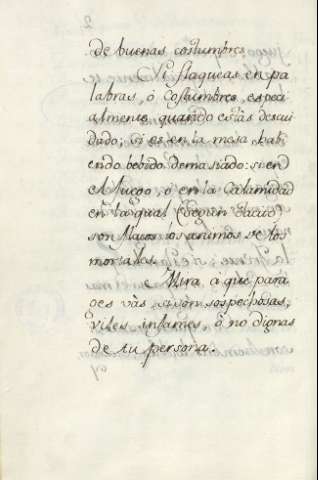 2
de buenas costumbres
Ni flaqueas en pa
labras, ò Costumbres, especi
almente, quando estàs descui
dado; si es en la mesa, hab
endo bebido demasiado: si en
el Juego, ò en la Calamidad
en la qual (segun Tacito)
son los animos de los
mortales.
Mira, à que para
ges vàs si son sospechosas,
viles infames, ò no dignas
de tu persona.